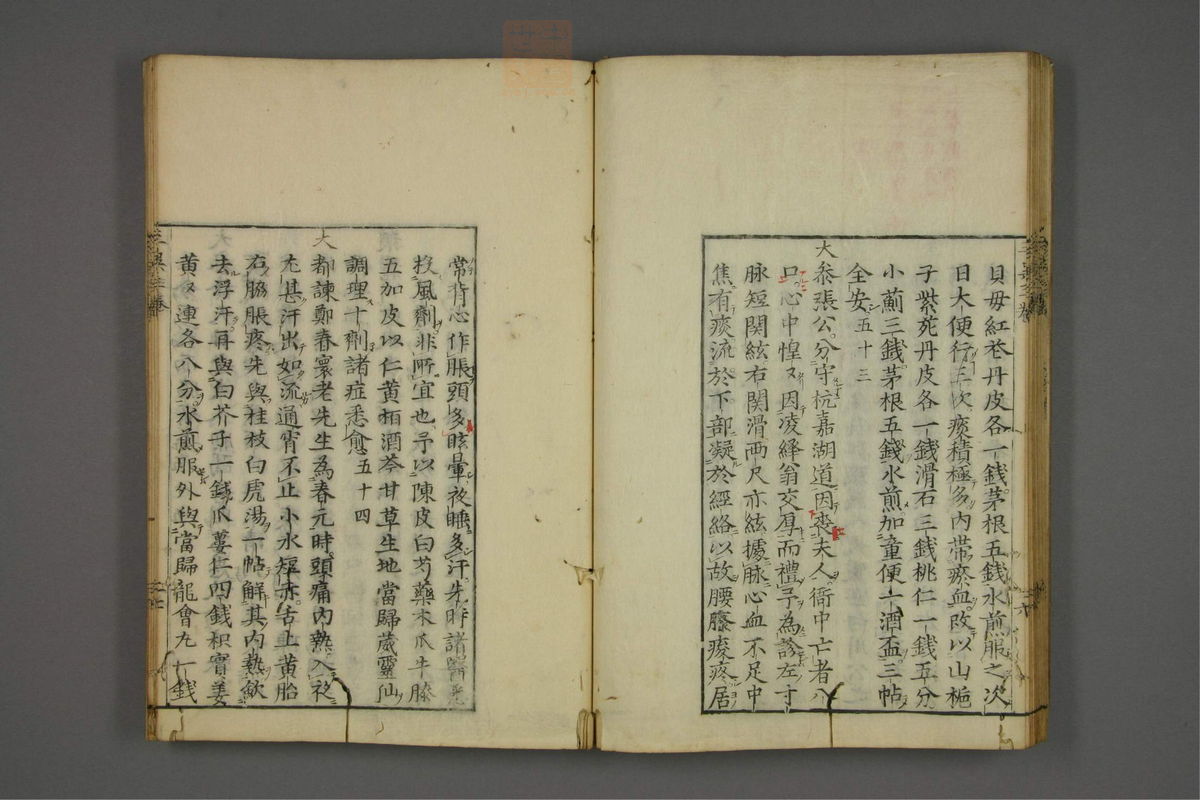 貝母紅花丹皮各一錢茅根五錢水煎服之次
日大便行三次痰積極多内帯瘀血改以山梔
子紫菀丹皮各一錢滑石三錢桃仁一錢五分
小薊三錢茅根五錢水煎加童便一酒盃三帖
全安五十三
大叅張公分守杭嘉湖道因喪夫人衙中亡者八
口心中惶々因凌繹翁交厚而禮予為診左寸
脉短関絃右関滑両尺亦絃據脉心血不足中
焦有痰流於下部凝於經絡以故腰膝痠疼居
常背心作脹頭多眩暈夜睡多汗先時諸醫悉
投風劑非所宜也予以陳皮白芍藥木瓜牛膝
五加皮以仁黄栢酒芩甘草生地當歸葳靈仙
調理十劑諸症悉愈五十四
大都諫鄭春寰老先生為春元時頭痛内熱入夜
尤甚汗出如流通宵不止小水短赤舌上黄胎
右脇脹疼先與桂枝白虎湯一帖解其内熱歛
去浮汗再與白芥子一錢瓜蔞仁四錢枳實姜
黄々連各八分水煎服外與當歸龍會丸一錢